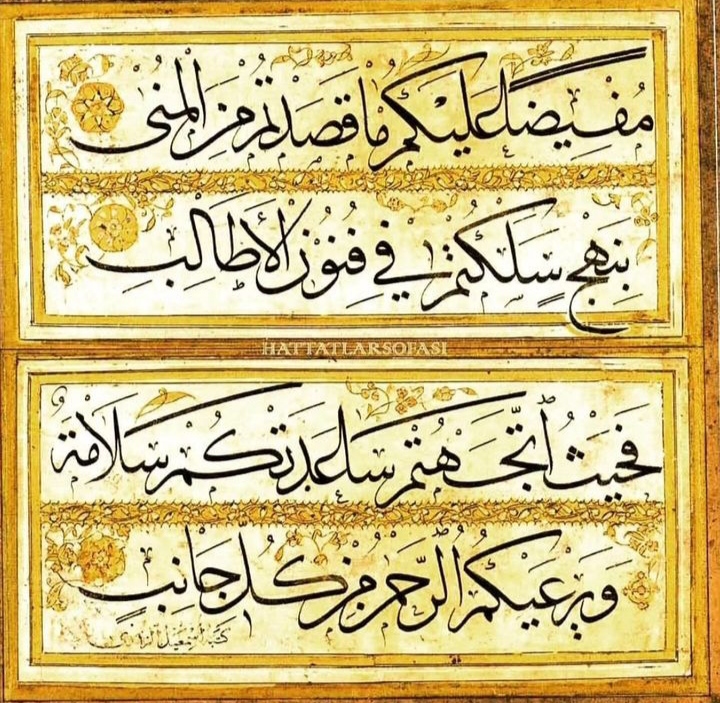 مُفِيضًا عَلَيْكُمْ مَا قَصَدْتُمْ مِنَ الْمُنَى
بِنَهْجٍ سَلَكْتُمْ فِي فُنُونِ الْأَطَالِبِ
HATTATLARSOFASI
فَحَيْثُ اتَّجَهْتُمْ سَاعَدَتْكُمْ سَلَامَةٌ
وَيَرْعَيكُمُ الرَّحْمٰنُ مِنْ كُلِّ جَانِبٍ